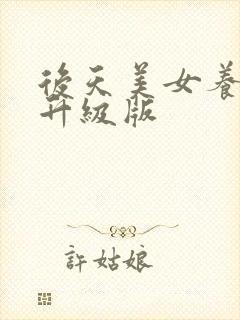 後天美女養
升級版
許姑娘